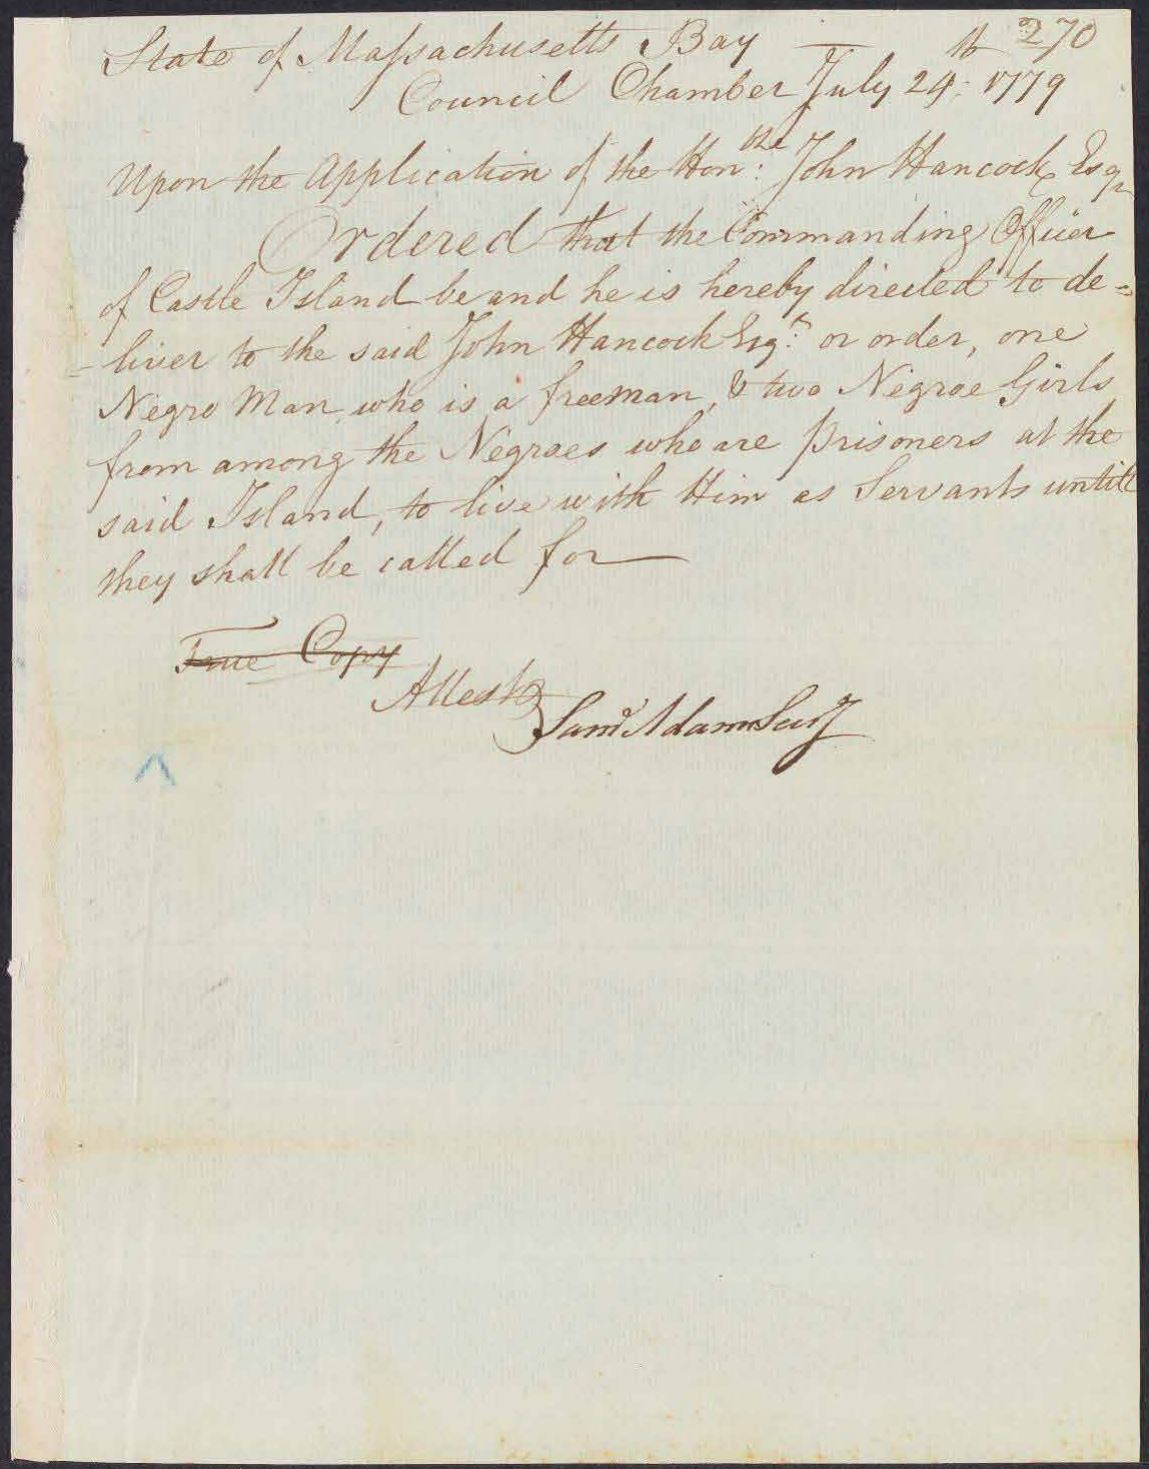 270
State of Massachusetts Bay —
Council Chamber July 29th: 1779
Upon the Application of the Honble: John Hancock Esqr
Ordered that the Commanding Officer
of Castle Island be and he is hereby directed to de=
=liver to the said John Hancock Esqr: or order, one
Negro Man who is a freeman, & two Negroe Girls,
from among the Negroes who are prisoners at the
said Island, to live with Him as Servants untill
they shall be called for —
True Copy
Attest
Saml Adams Secy